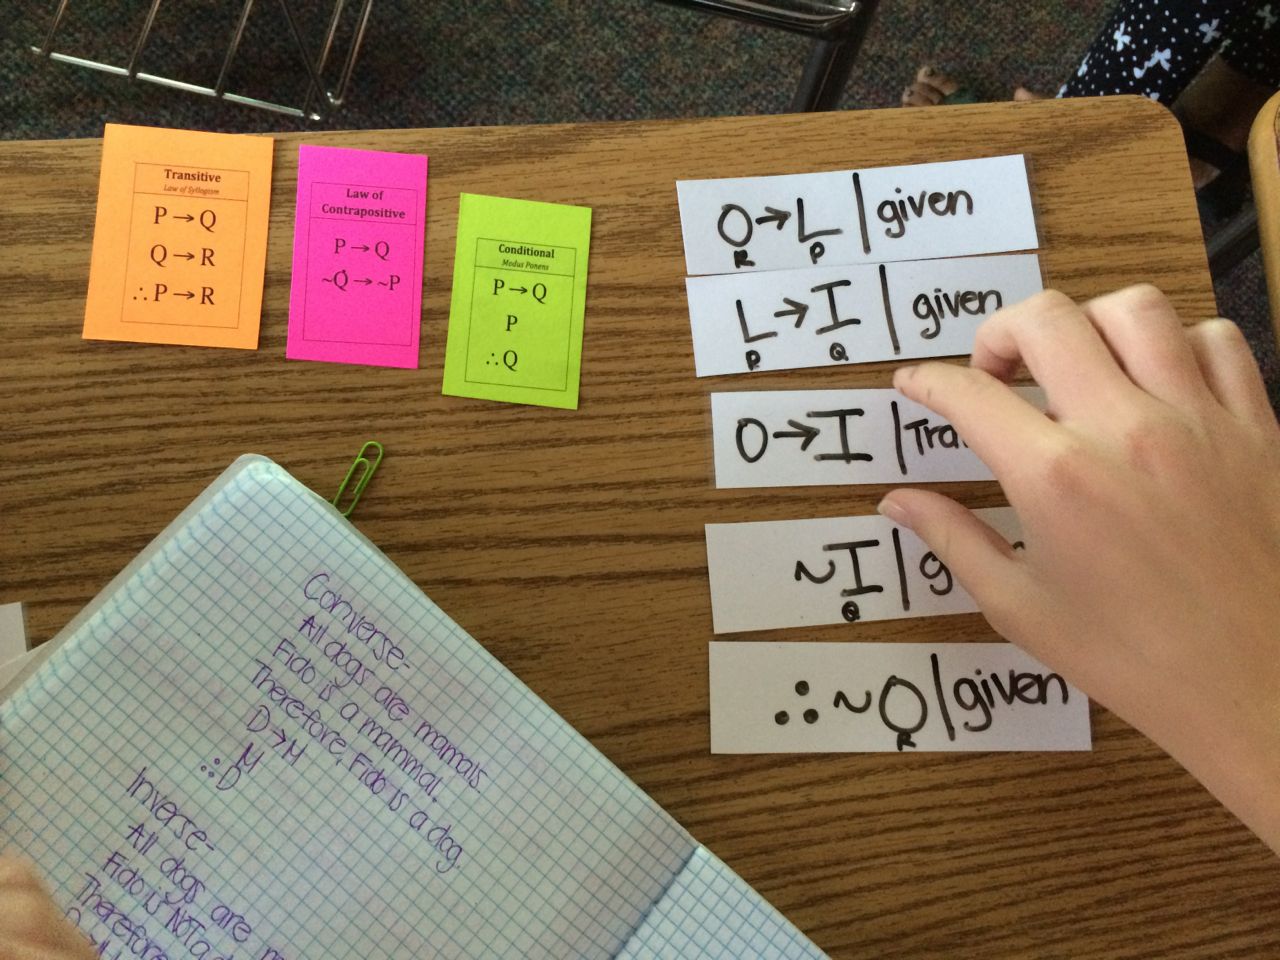 Transitive
Law of Syllogism
P→Q
Q→R
∴P→R
Law of
Contrapositive
P→Q
~Q→~P
Conditional
Modus Ponens
P→Q
P
∴Q
O→L | given
R P
L→I | given
P Q
O→I |
~I |
Q
∴~O | given
R
Converse-
All dogs are mamals.
Fido is a mammal.
Therefore, Fido is a dog.
D→M
M
∴D
Inverse-
All dogs are
Fido is NOT a
Therefore